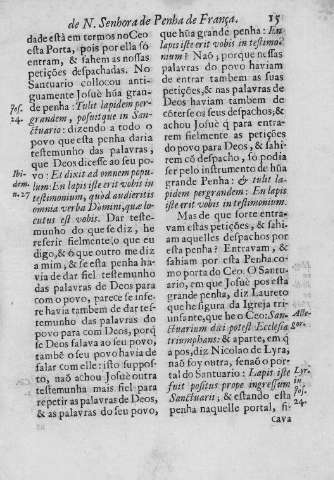 de N. Senhora de Penha de França. 15
dade està em termos no Ceo
esta Porta, pois por ella só
entram, & sahem as nossas
petições despachadas. No
Santuario collocou anti-
guamente Josuè hũa gran-
de penha: Tulit lapidem per-
grandem, posuitque in San-
ctuario: dizendo a todo o
povo que esta penha daria
testemunho das palavras,
que Deos dicesse ao seu po-
vo: Et dixit ad omnem popu-
lum: En lapis iste erit vobis in
testimonium, quòd audieritis
omnia verba Domini, quæ lo-
cutus est vobis. Dar teste-
munho do que se diz, he
referir fielmente, o que eu
digo, & o que outro me diz
a mim, & se esta penha ha-
via de dar fiel testemunho
das palavras de Deos para
com o povo, parece se infe-
re havia tambem de dar tes-
temunho das palavras do
povo para com Deos, porq̃
se Deos falava ao seu povo,
tambẽ o seu povo havia de
falar com elle: isto suppos-
to, naõ achou Josuè outra
testemunha mais fiel para
repetir as palavras de Deos,
& as palavras do seu povo,
Jos.
24.
Ibi-
dem.
n. 27
que hũa grande penha: En
lapis iste erit vobis in testimo-
nium? Naõ; porque nessas
palavras do povo haviam
de entrar tambem as suas
petições, & nas palavras de
Deos haviam tambem de
cõterse os seus despachos; &
achou Josuè q̃ para entra-
rem fielmente as petições
do povo para Deos, & sahi-
rem cõ despacho, so podia
ser pello instrumento de hũa
grande Penha: & tulit la-
pidem pergrandem: En lapis
iste erit vobis in testimonium.
Mas de que forte entra-
vam estas petições, & sahi-
am aquelles despachos por
esta penha? Entravam, &
sahiam por esta Penha co-
mo porta do Ceo. O Santu-
ario, em que Josuè pos esta
grande penha, diz Laureto
que he figura da Igreja tri-
unfante, que he o Ceo: San-
ctuarium dici potest Ecclesia
triumphans: & aparte, em q̃
a pos, diz Nicolao de Lyra,
naõ foy outra, senaõ o por-
tal do Santuario: Lapis iste
fuit positus prope ingressum
Sanctuarii; & estando esta
penha naquelle portal, fi-
Alle-
gor.
Lyr.
in
Jos.
24.
cava